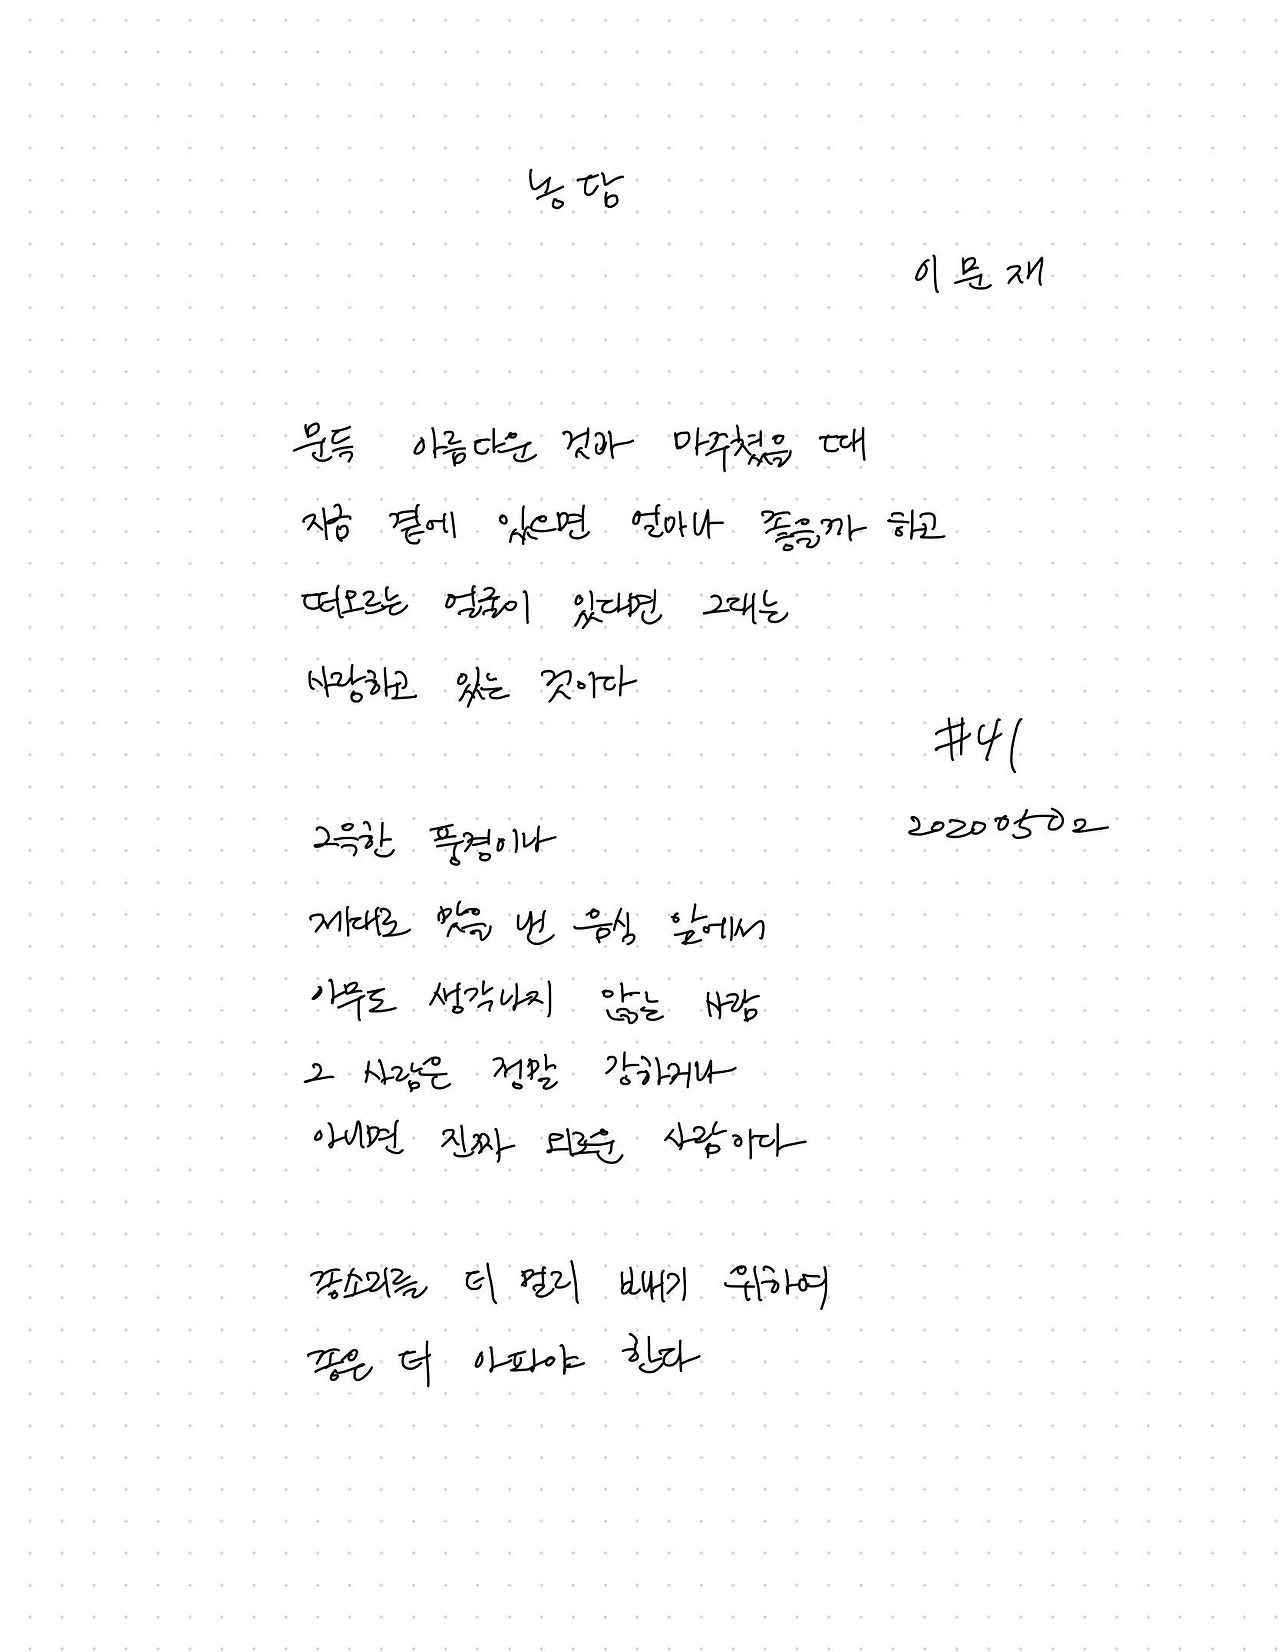 농담
이문재
문득 아름다운 것과 마주쳤을 때
지금 곁에 있으면 얼마나 좋을까 하고
떠오르는 얼굴이 있다면 그대는
사랑하고 있는 것이다
#41
20200502
그윽한 풍경이나
제대로 맛을 낸 음식 앞에서
아무도 생각나지 않는 사람
그 사람은 정말 강하거나
아니면 진짜 외로운 사람이다
종소리를 더 멀리 보내기 위하여
종은 더 아파야 한다